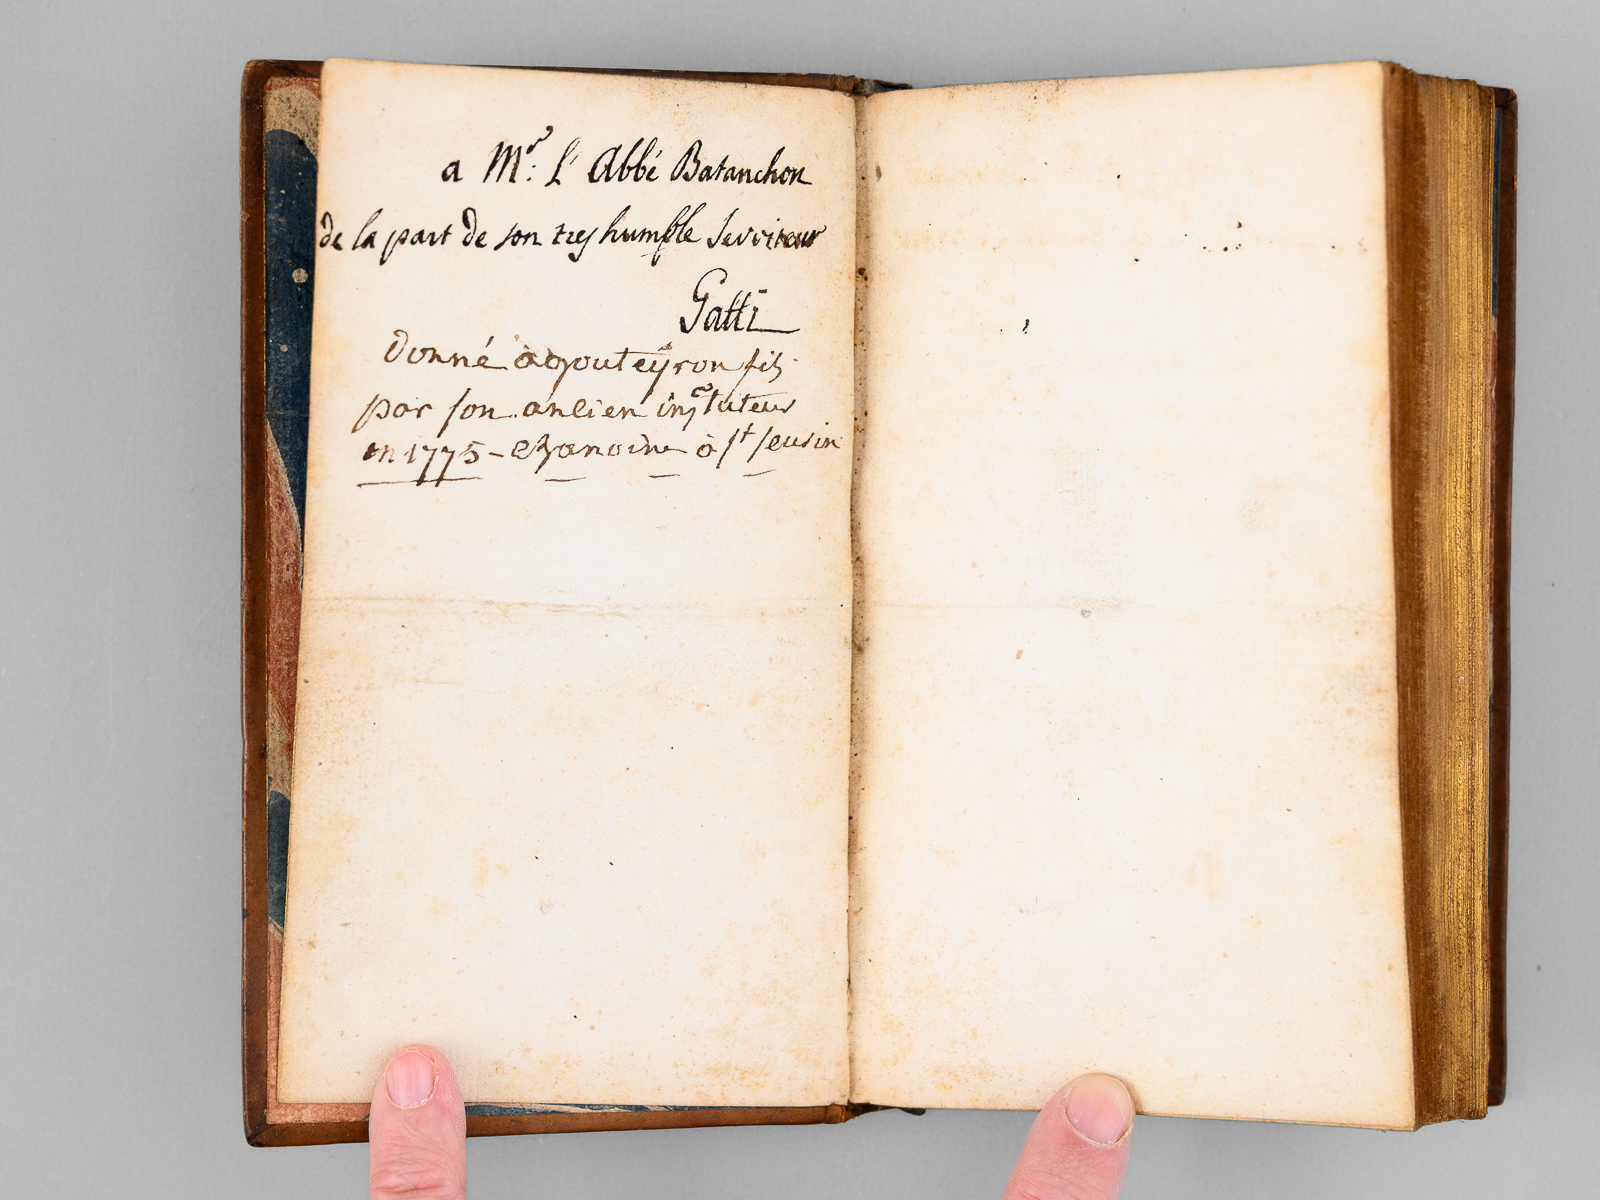 a Mr. L'Abbé Batanchon
de la part de son tres humble serviteur
Gatti
Donné à gouteyron fils
par son ancien instituteur
en 1775 - chanoine à st seurin